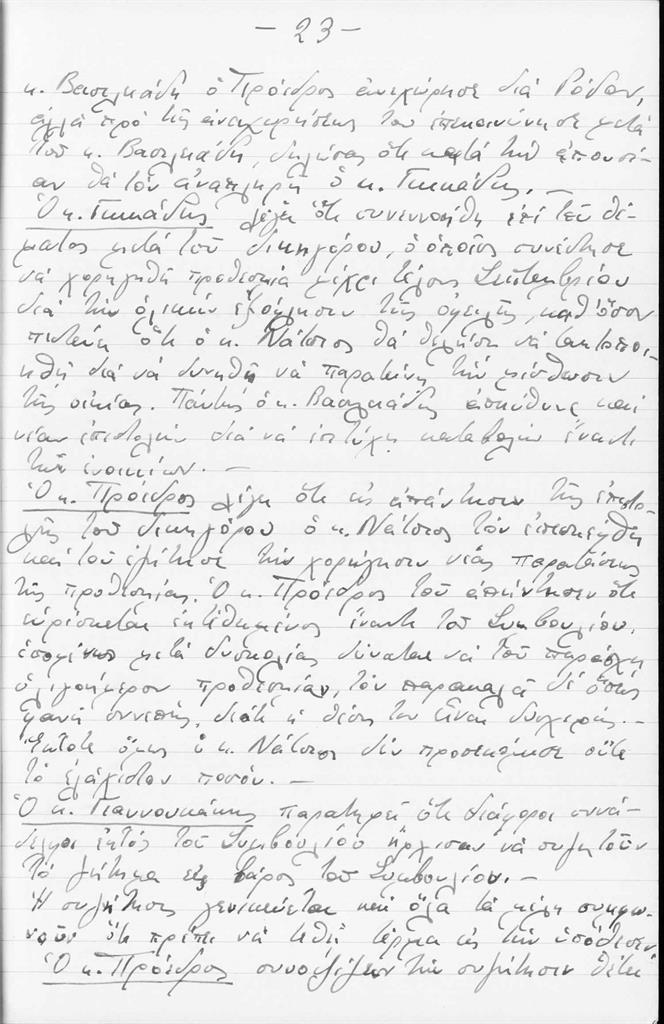 - 23 -
κ. Βασιλειάδη ὁ Πρόεδρος ἀνεχώρησε διά Ρόδον,
ἀλλά πρό τῆς ἀναχωρήσεώς του ἐπεκοινώνησε μετά
τοῦ κ. Βασιλειάδη, δηλώσας ὅτι κατά τήν ἀπουσί-
αν θά τόν ἀναπληρῇ ὁ κ. Γικκάδης. -
Ὁ κ. Γικκάδης λέγει ὅτι συνεννοήθη ἐπί τοῦ θέ-
ματος μετά τοῦ δικηγόρου, ὁ ὁποῖος συνέστησε
νά χορηγηθῇ προθεσμία μέχρι τέλους Σεπτεμβρίου
διά τήν ὁλικήν ἐξόφλησιν τῆς ὀφειλῆς, καθ' ὅσον
πιστεύει ὅτι ὁ κ. Νάτσιος θά θελήσῃ νά
διά νά δυνηθῇ νά παρατείνῃ τήν μίσθωσιν
τῆς οἰκίας. Πάντως ὁ κ. Βασιλειάδης ἀπηύθυνε καί
νέαν ἐπιστολήν διά νά ἐπιτύχῃ καταβολήν ἔναντι
τῶν ἐνοικίων. -
Ὁ κ. Πρόεδρος λέγει ὅτι εἰς ἀπάντησιν τῆς ἐπιστο-
λῆς τοῦ δικηγόρου ὁ κ. Νάτσιος τόν ἐπεσκέφθη
καί τοῦ ἐζήτησε τήν χορήγησιν νέας παρατάσεως
τῆς προθεσμίας. Ὁ κ. Πρόεδρος τοῦ ἀπήντησεν ὅτι
εὑρίσκεται ἐκτεθειμένος ἔναντι τοῦ Συμβουλίου,
ἑπομένως μετά δυσκολίας δύναται νά τοῦ παράσχῃ
ὀλιγοήμερον προθεσμίαν, τόν παρακαλεῖ δέ ὅπως
φανῇ συνεπής, διότι ἡ θέσις του εἶναι δυσχερής. -
Ἔκτοτε ὅμως ὁ κ. Νάτσιος δέν προσεκόμισε οὔτε
τό ἐλάχιστον ποσόν. -
Ὁ κ. Γιαννουκάκης παρατηρεῖ ὅτι διάφοροι συνά-
δελφοι ἐκτός τοῦ Συμβουλίου ἤρχισαν νά συζητοῦν
τό ζήτημα εἰς βάρος τοῦ Συμβουλίου. -
Ἡ συζήτησις γενικεύεται καί ὅλα τά μέλη συμφω-
νοῦν ὅτι πρέπει νά τεθῇ τέρμα εἰς τήν ὑπόθεσιν.
Ὁ κ. Πρόεδρος συνοψίζων τήν συζήτησιν θέτει